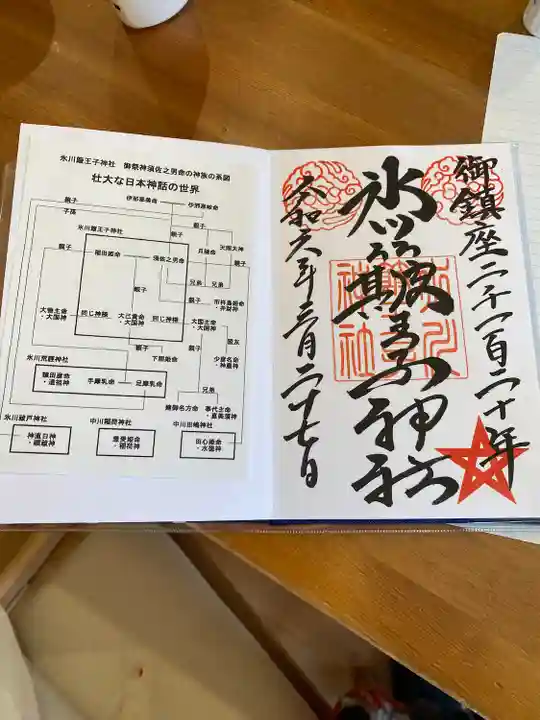 氷川簸王子神社 御祭神須佐之男命の神族の系図
壮大な日本神話の世界
伊邪那美命
伊邪那岐命
親子
子孫
親子
氷川簸王子神社
兄姉命
天照大神
親子
稲田姫命
須佐之男命
親子
親子
兄弟
兄弟
親子
市杵島姫命・弁財神
大物主命・大国神
同じ神様
大己貴命・大国神
同じ神様
大国主命・大国神
親友
氷川荒脛神社
下照姫命
親子
少彦名命・神農神
猿田彦命・道祖神
手摩乳命
足摩乳命
兄弟
建御名方命
事代主命・恵美須神
氷川祓戸神社
中川稲荷神社
中川宗嶋神社
神直日神・禊祓神
豊受姫命・稲荷神
田心姫命・水徳神
御鎮座二千百二十年
氷川簸王子神社
令和六年三月二十七日